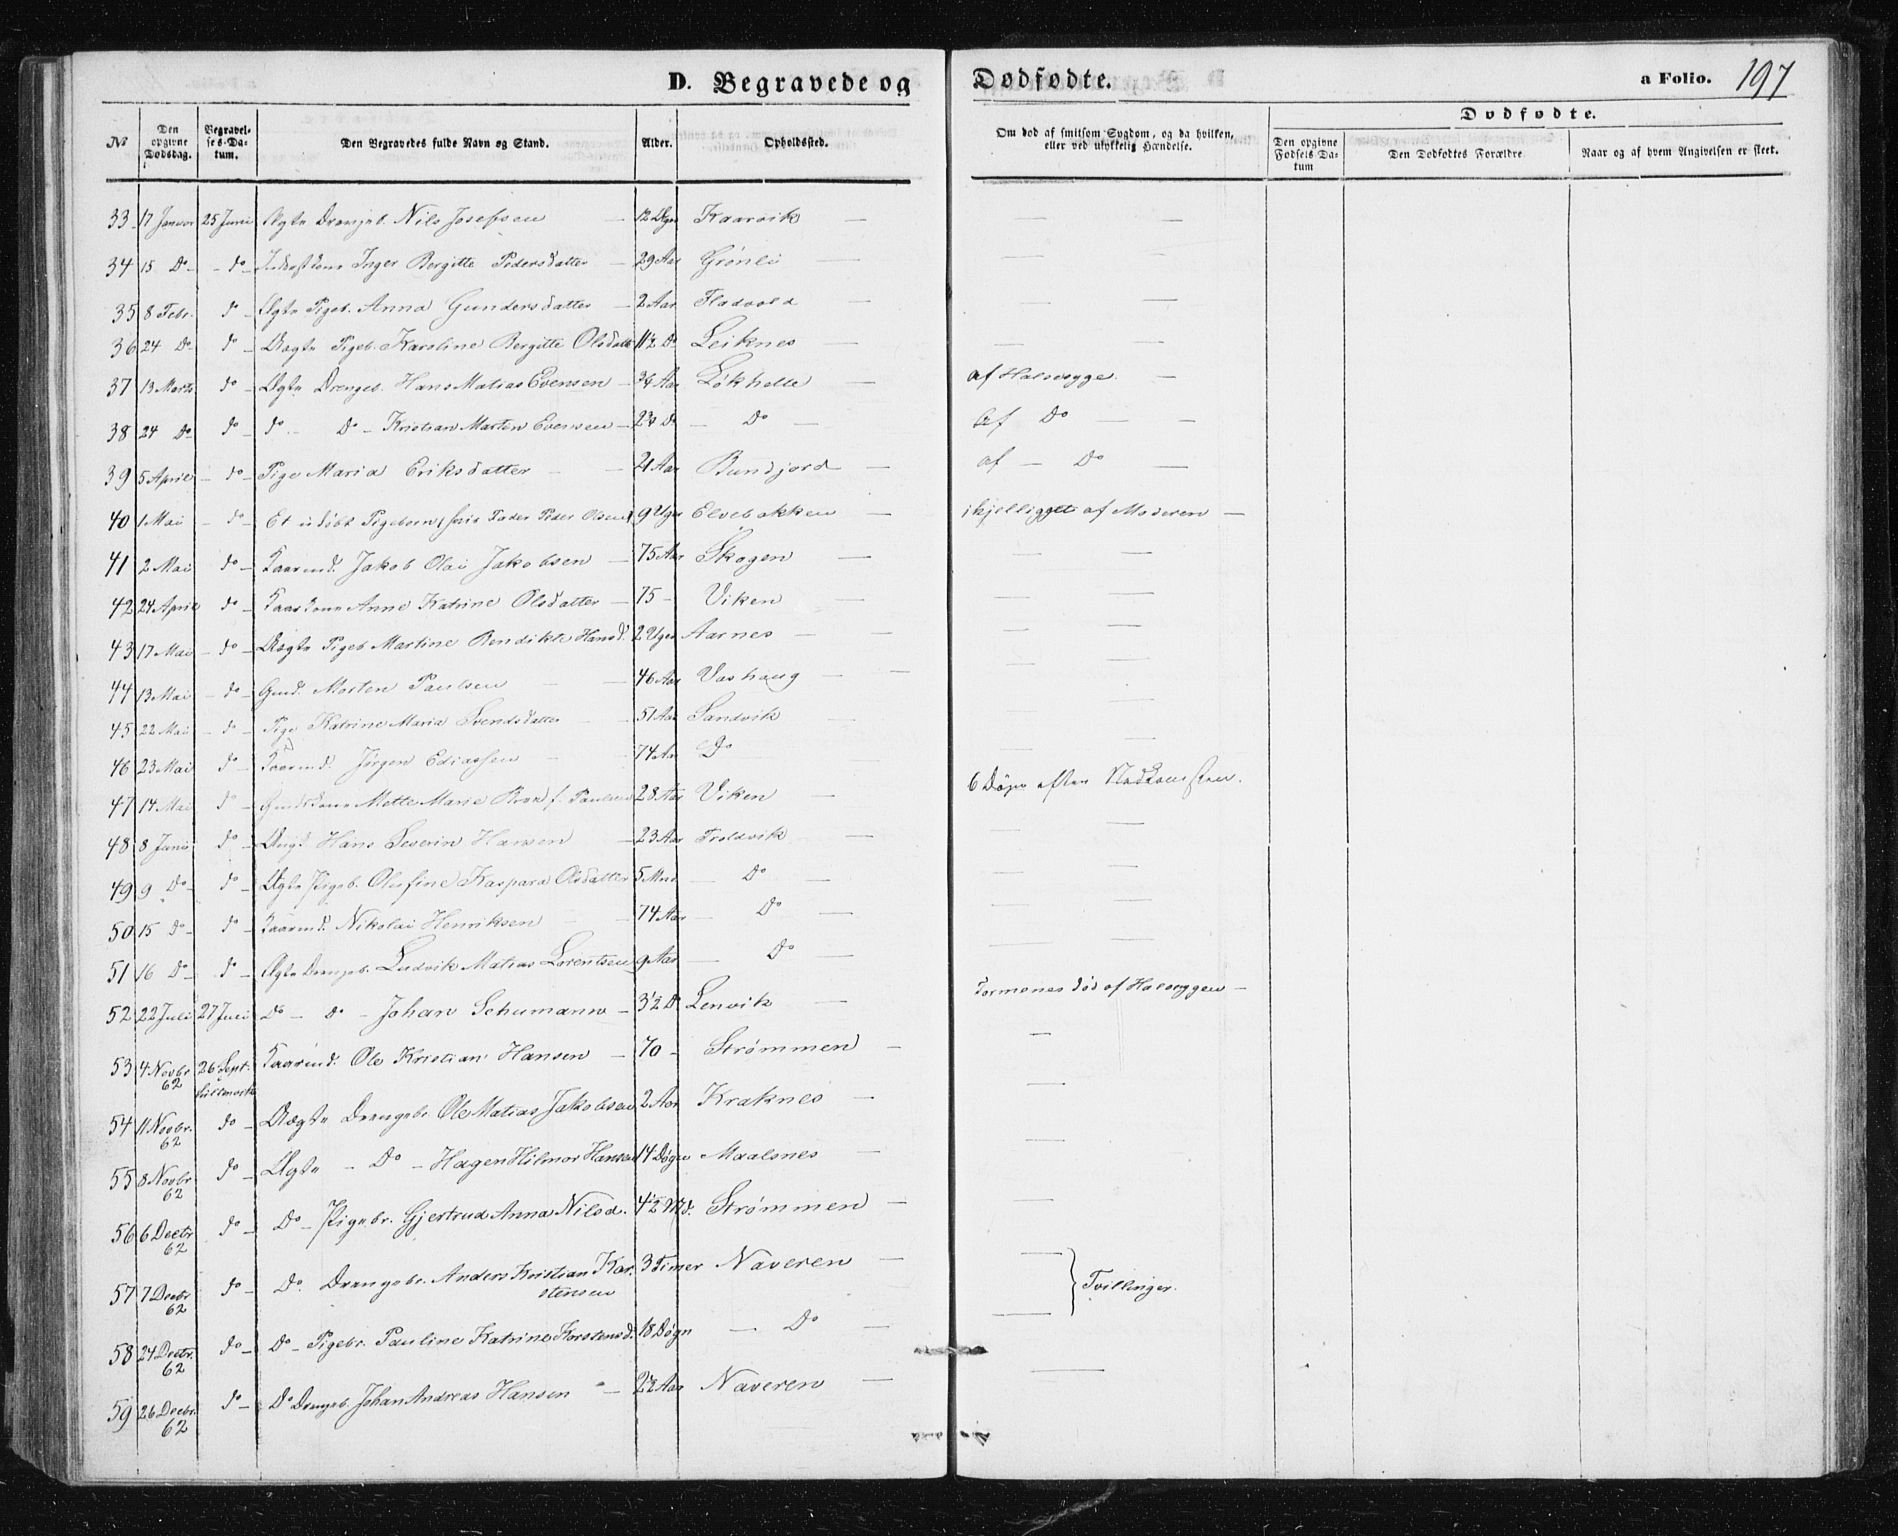 D. Begravede og Dødfødte.
a Folio. 197
Dødfødte.
No
Den opgivne Dødsdag.
Begravelses-Datum.
Den Begravedes fulde Navn og Stand.
Alder.
Opholdssted.
Om død af smitsom Sygdom, og da hvilken, eller ved ulykkelig Hændelse.
Den opgivne Fødsels Datum
Den Dødfødtes Forældre
Naar og af hvem Angivelsen er skeet.
33 17 Januar 25 Juni Ægte Drengeb. Nils Josefsen — 12 Uger Kaarvik —
34 15 Do - do - Inger Bergitte Pedersdatter — 29 Aar Grønli —
35 8 Febr. do - Ægte Pigeb. Anna Gundersdatter — 2 Aar Fladvold —
36 24 Do do - Uægte Pigeb. Karoline Bergitte Olsdatt 1 1/2 Do Leiknes —
37 13 Marts do - Ægte Drengeb. Hans Matias Evensen — 3/4 Aar Løkhelle — af Halssyge. —
38 24 Do do - do - Do - Kristian Martin Evensen - 2 3/4 Do — Do — Af Do — —
39 5 April - do - Pige Maria Eriksdatter — 21 Aar Bundjord — af — Do —
40 1 Mai - do - Et udøbt Pigebarn (hvis Fader Peder Olsen) 9 Uger Elvebakken — ihjelligget af Moderen —
41 2 Mai do - Kaarmd. Jakob Olai Jakobsen — 75 Aar Skogen —
42 24 April do - Kaarkone Anne Katrine Olsdatter — 75 - Viken —
43 17 Mai - do - Uægte Pigeb Martine Bendikte Hansd. 2 Uger Aarnes —
44 13 Mai - do - Gmd. Morten Paulsen — 46 Aar Vashaug —
45 22 Mai - do - Pige Katrine Maria Svendsdatter — 51 Aar Sandvik —
46 23 Mai do - Kaarmd. Jørgen Ediassen — 74 Aar Do
47 14 Mai do - Gmdskone Mette Marie Paulsen 28 Aar Viken — 6 Døgn efter Nedkomsten.
48 8 Juni do - Ungk Hans Severin Hansen — 23 Aar Troldvik —
49 9 Do- do - Ægte Pigeb. Olufine Kaspara Olsdatter 5 Mnd — Do —
50 15 Do- do - Kaarmd. Nikolai Henriksen — 74 Aar — Do —
51 16 Do- do - Ægte Drengeb. Ludvik Matias Lorentsen 9 Aar — Do —
52 22 Juli 27 Juli Do - Do - Johan Schumann - 3 1/2 Do Lenvik — død af Halssygen —
53 4 Novbr. 62 26 Sept. Kaarmd. Ole Kristian Hansen — 70 - Strømmen —
54 11 Novbr. 62 do - Uægte Drengebr. Ole Matias Jakobsen 2 Aar Kraknes —
55 8 Novbr 62 do - Ægte - Do - Hagen Hilmor Hansen 14 Døgn Maalsnes —
56 6 Decbr 62 do - Do - Pigebr. Gjertrud Anna Nilsd. 4 1/2 Md. Strømmen —
57 7 Decbr 62 do - Do. Drengebr. Anders Kristian Karstensen 3 Timer Naveren —
58 24 Decbr. 62 do - Do - Pigebr. Pauline Katrine Karstensd. 18 Døgn — Do —
Tvillinger.
59 26 Decbr. 62 do - Do Drengeb. Johan Andreas Hansen — 2 1/2 Aar Naveren —